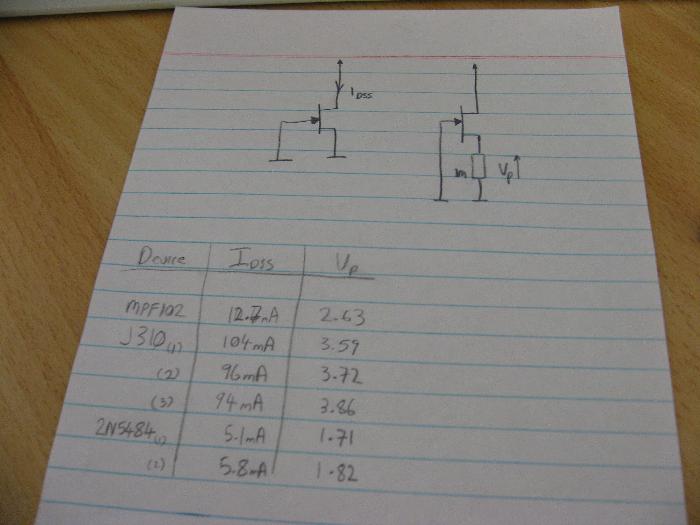 IDSS
1M Vp
Device IDSS Vp
MPF102 12.7mA 2.63
J310(1) 104mA 3.59
(2) 96mA 3.72
(3) 94mA 3.86
2N5484(1) 5.1mA 1.71
(2) 5.8mA 1.82